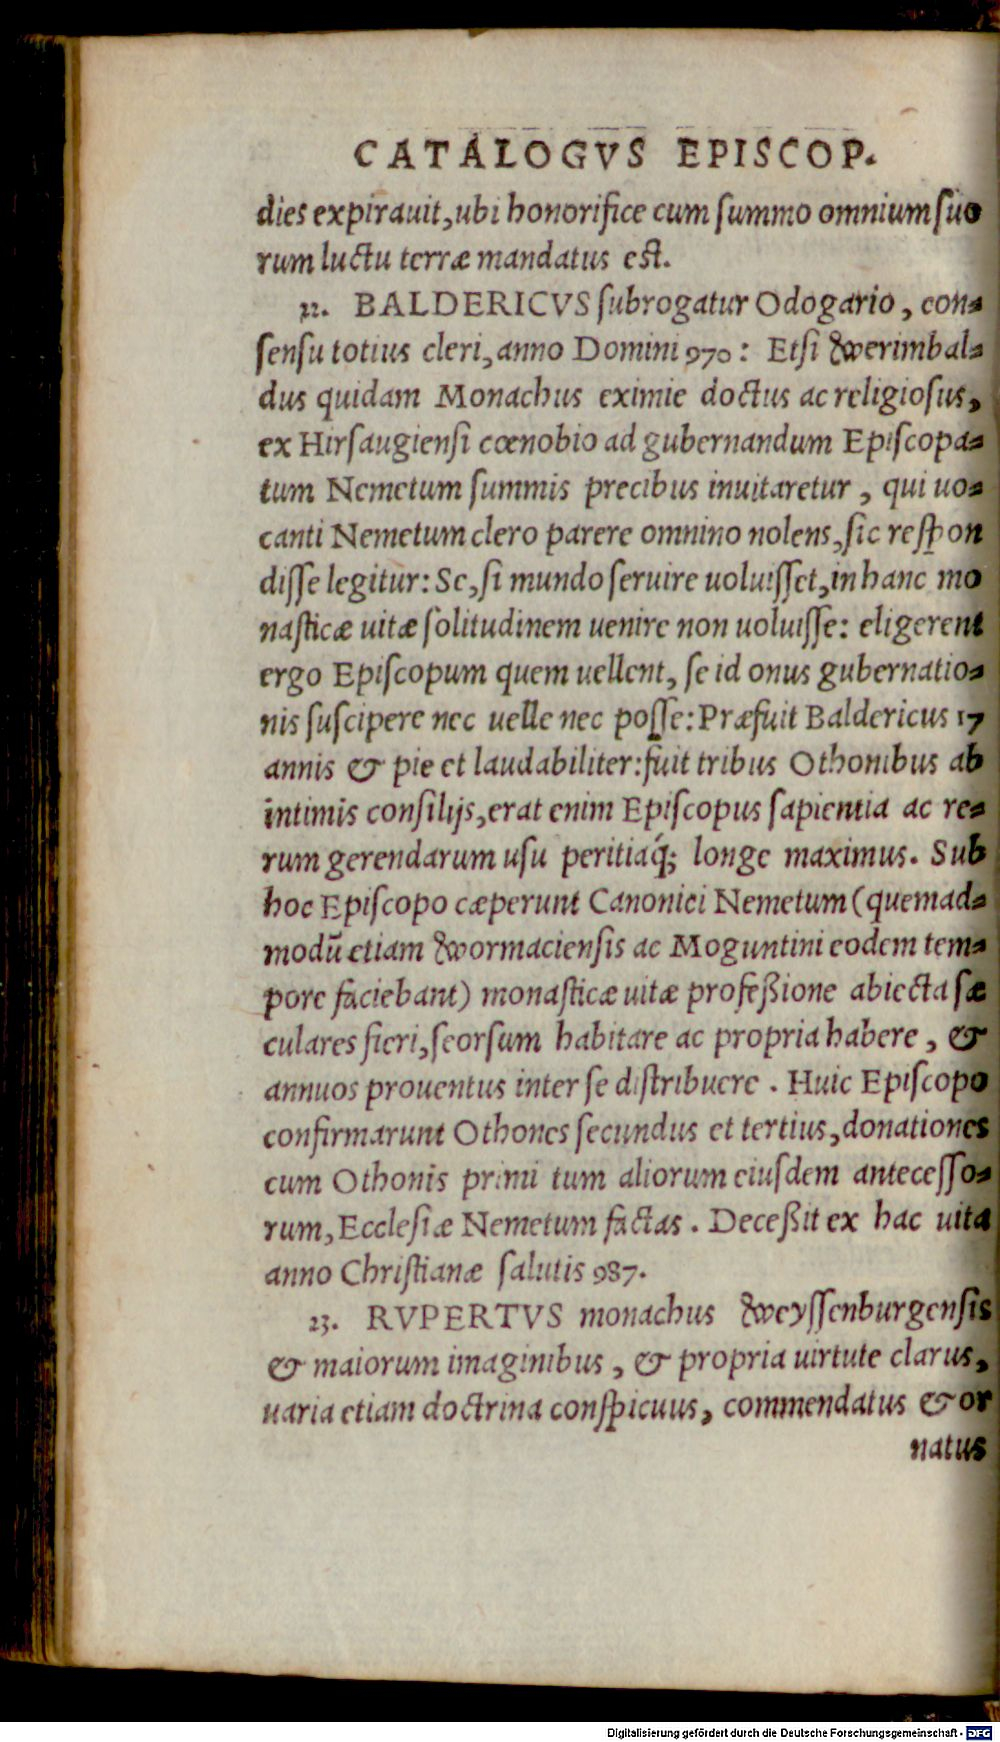 CATALOGVS EPISCOP.
dies expirauit, ubi honorifice cum ſummo omnium ſuo
rum luctu terræ mandatus eſt.
22. BALDERICVS ſubrogatur Odogario, con-
ſenſu totius cleri, anno Domini 970: Etſi Werimbal-
dus quidam Monachus eximie doctus ac religioſus,
ex Hirſaugienſi cœnobio ad gubernandum Epiſcopa-
tum Nemetum ſummis precibus inuitaretur, qui uo-
canti Nemetum clero parere omnino nolens, ſic reſpon
diſſe legitur: Se, ſi mundo ſeruire uoluiſſet, in hanc mo
naſticæ uitæ ſolitudinem uenire non uoluiſſe: eligerent
ergo Epiſcopum quem uellent, ſe id onus gubernatio-
nis ſuſcipere nec uelle nec poſſe: Præfuit Baldericus 17
annis & pie et laudabiliter: fuit tribus Othonibus ab
intimis conſilijs, erat enim Epiſcopus ſapientia ac re-
rum gerendarum uſu peritiaq́; longe maximus. Sub
hoc Epiſcopo cæperunt Canonici Nemetum (quemad-
modũ etiam Wormacienſis ac Moguntini eodem tem-
pore faciebant) monaſticæ uitæ profeßione abiecta ſæ
culares fieri, ſeorſum habitare ac propria habere, &
annuos prouentus inter ſe diſtribuere. Huic Epiſcopo
confirmarunt Othones ſecundus et tertius, donationes
cum Othonis primi tum aliorum eiuſdem anteceſſo-
rum, Eccleſiæ Nemetum factas. Deceßit ex hac uita
anno Chriſtianæ ſalutis 987.
23. RVPERTVS monachus Weyſſenburgenſis
& maiorum imaginibus, & propria uirtute clarus,
uaria etiam doctrina conſpicuus, commendatus & or
natus
Digitalisierung gefördert durch die Deutsche Forschungsgemeinschaft - DFG